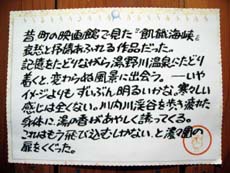 昔町の映画館で見た『飢餓海峡』
哀愁と抒情あふれる作品だった。
記憶をたどりながら湯野川温泉にたどり
着くと、変わらぬ風景に出会う。——いや
イメージよりも、ずいぶん明るいかな、寒々しい
感じは全くない。川内川渓谷を歩き疲れた
身体に、湯の香があやしく誘ってくる。
これはもう飛び込むしかない、と濃々園の
扉をくぐった。